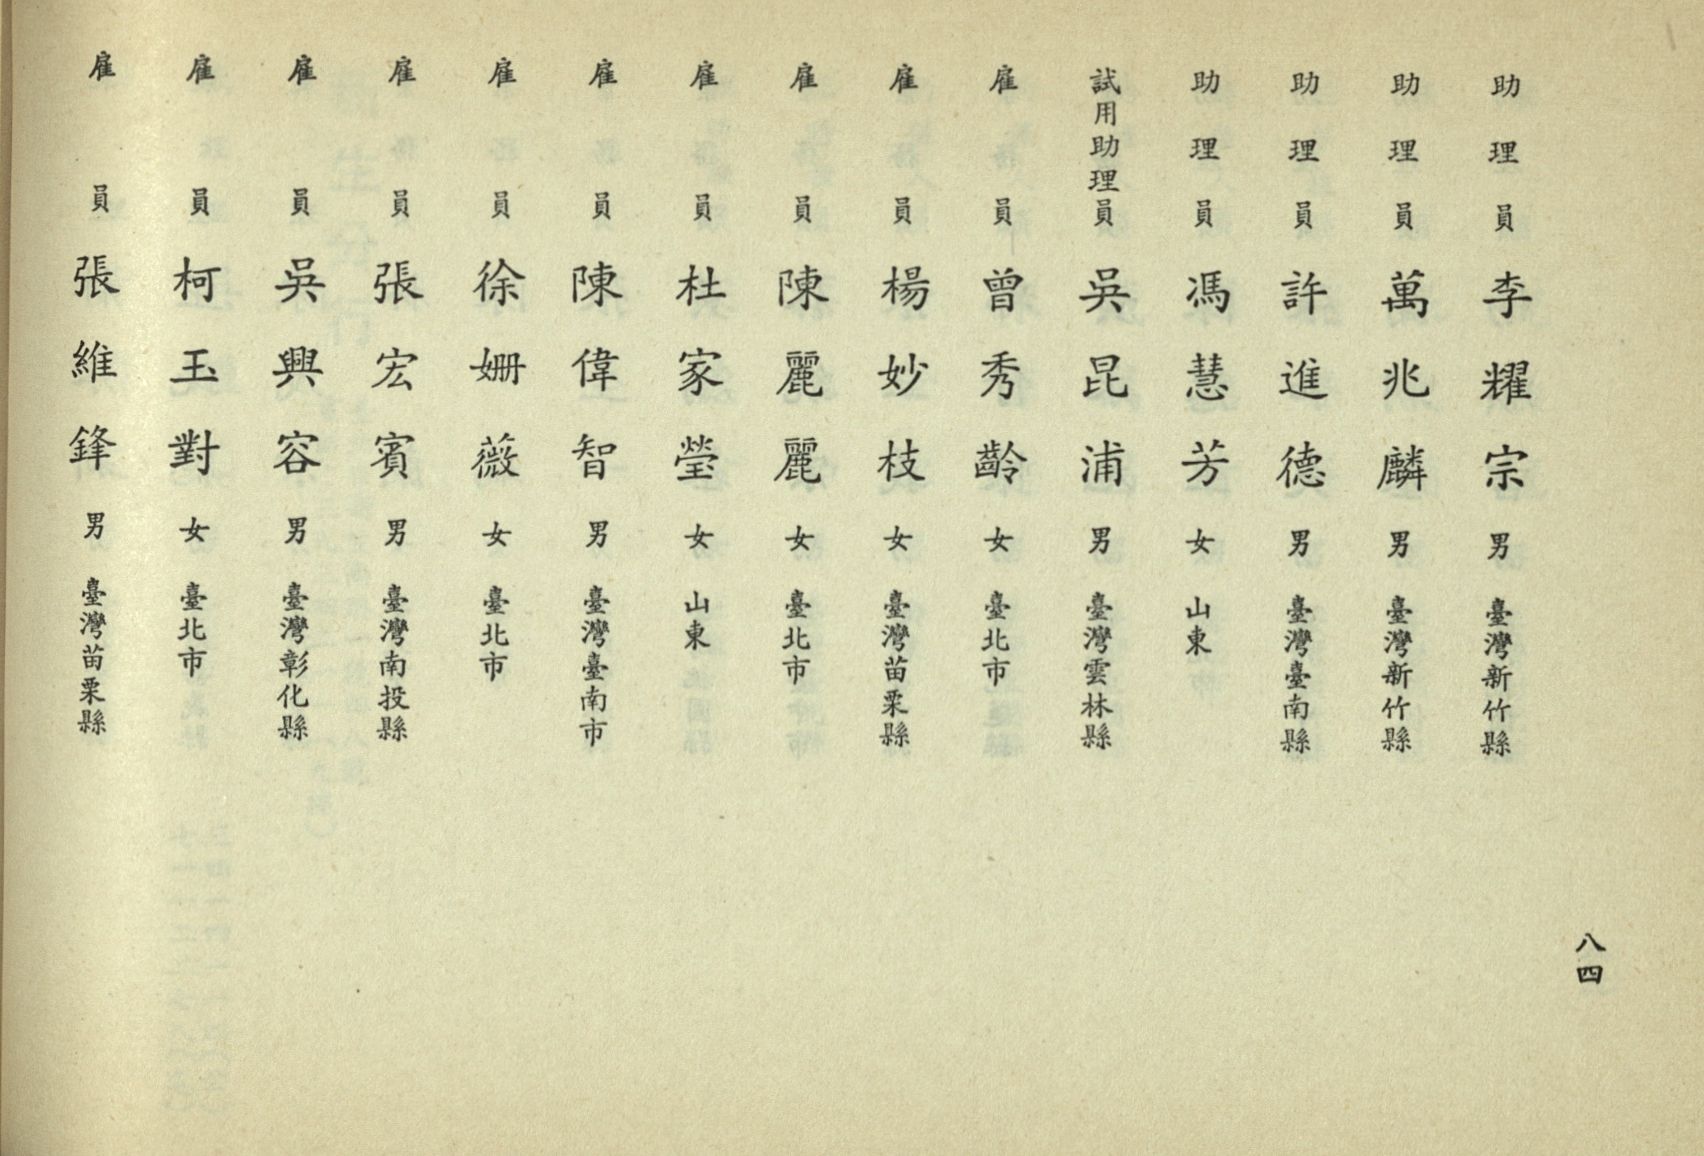 助理員 李耀宗 男 臺灣新竹縣
助理員 萬兆麟 男 臺灣新竹縣
助理員 許進德 男 臺灣臺南縣
助理員 馮慧芳 女 山東
試用助理員 吳昆浦 男 臺灣雲林縣
雇員 曾秀齡 女 臺北市
雇員 楊妙枝 女 臺灣苗栗縣
雇員 陳麗麗 女 臺北市
雇員 杜家瑩 女 山東
雇員 陳偉智 男 臺灣臺南市
雇員 徐姍薇 女 臺北市
雇員 張宏賓 男 臺灣南投縣
雇員 吳興容 男 臺灣彰化縣
雇員 柯玉對 女 臺北市
雇員 張維鋒 男 臺灣苗栗縣
八四